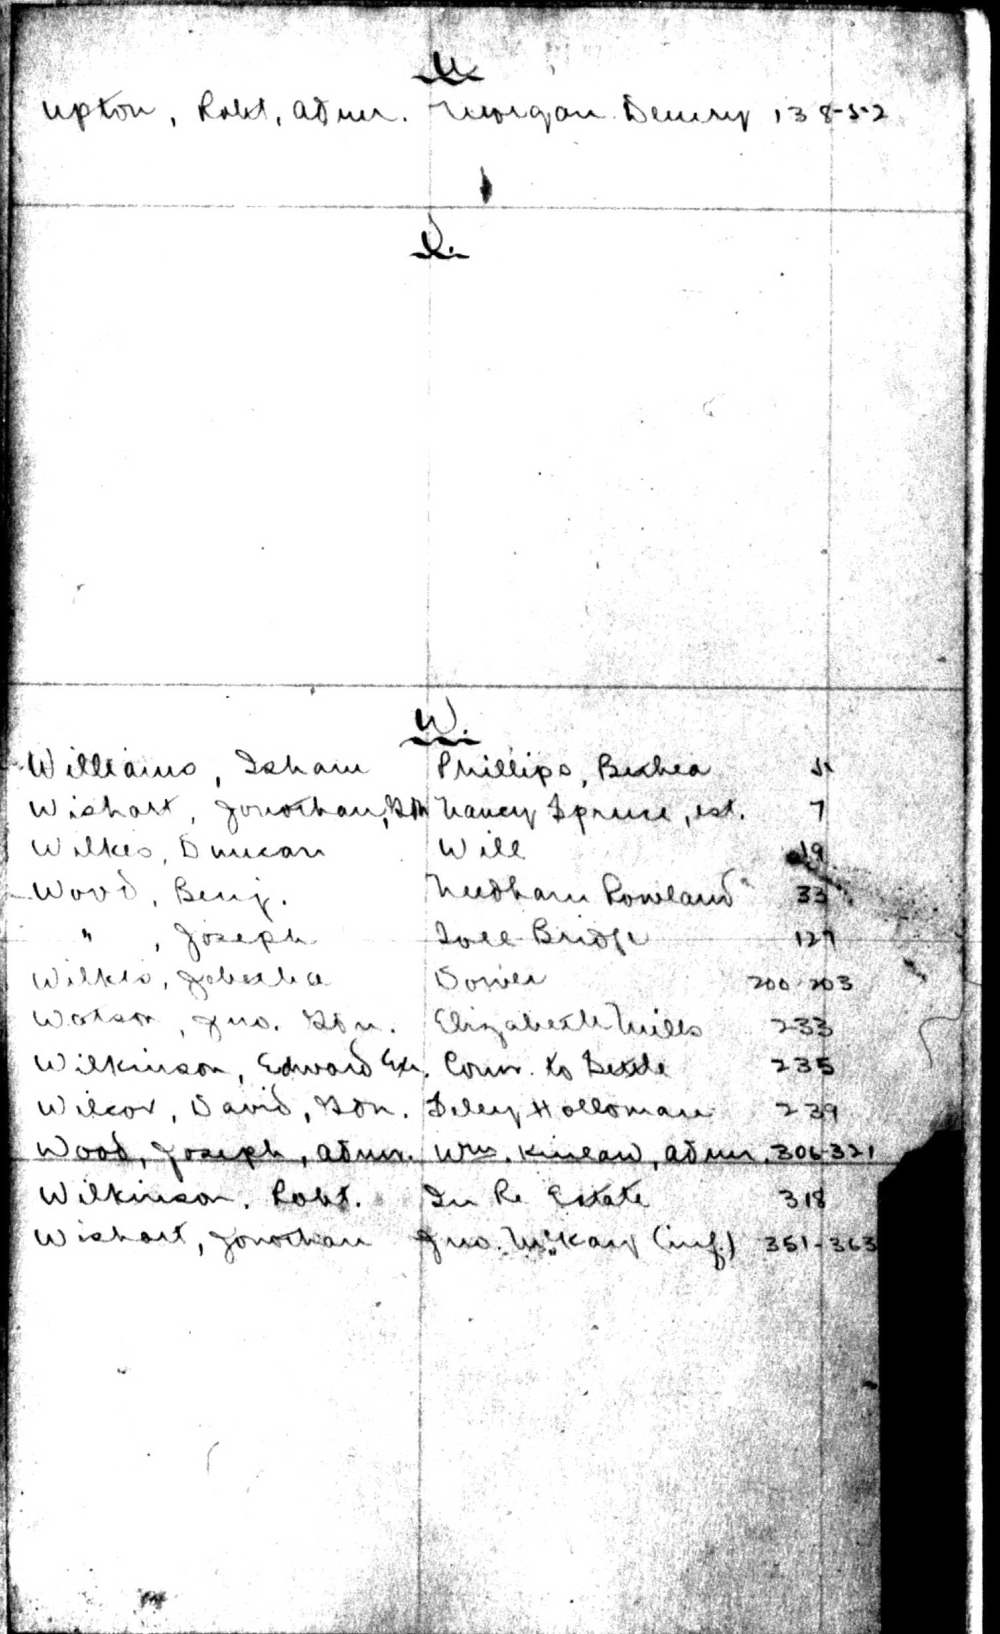 U
Upton, Robt, Admr. Morgan Drury 138-52
V.
W.
Williams, Isham Phillips, Bethea
Wishart, Jonathan, Gdn Nancy Spruce, est. 7
Wilkes, Duncan Will 19
Wood, Benj. Needham Rowland 33
" , Joseph Toll Bridge 127
Wilkes, Dower 200-203
Watson, Jno. Gdn. Elizabeth Mills 233
Wilkinson, Edward Exr. Com. to Settle 235
Wilcox, David, Gdn. Holloman 239
Wood, Joseph, Admr. Wm. Kinlaw, Admr. 306-321
Wilkinson, Robt. In Re Estate 318
Wishart, Jonathan Jno. McKay (inf.) 351-363